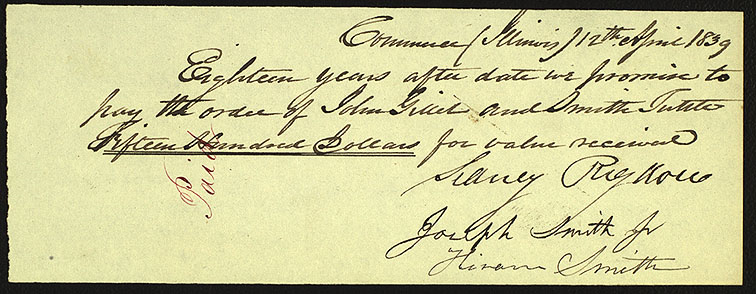 Commerce (Illinois) 12th April 1839
Eighteen years after date we promise to
pay the order of John Gillet and Smith Tuttle
Fifteen Hundred Dollars for value received
Paid
Sidney Rigdon
Joseph Smith Jr
Hiram Smith